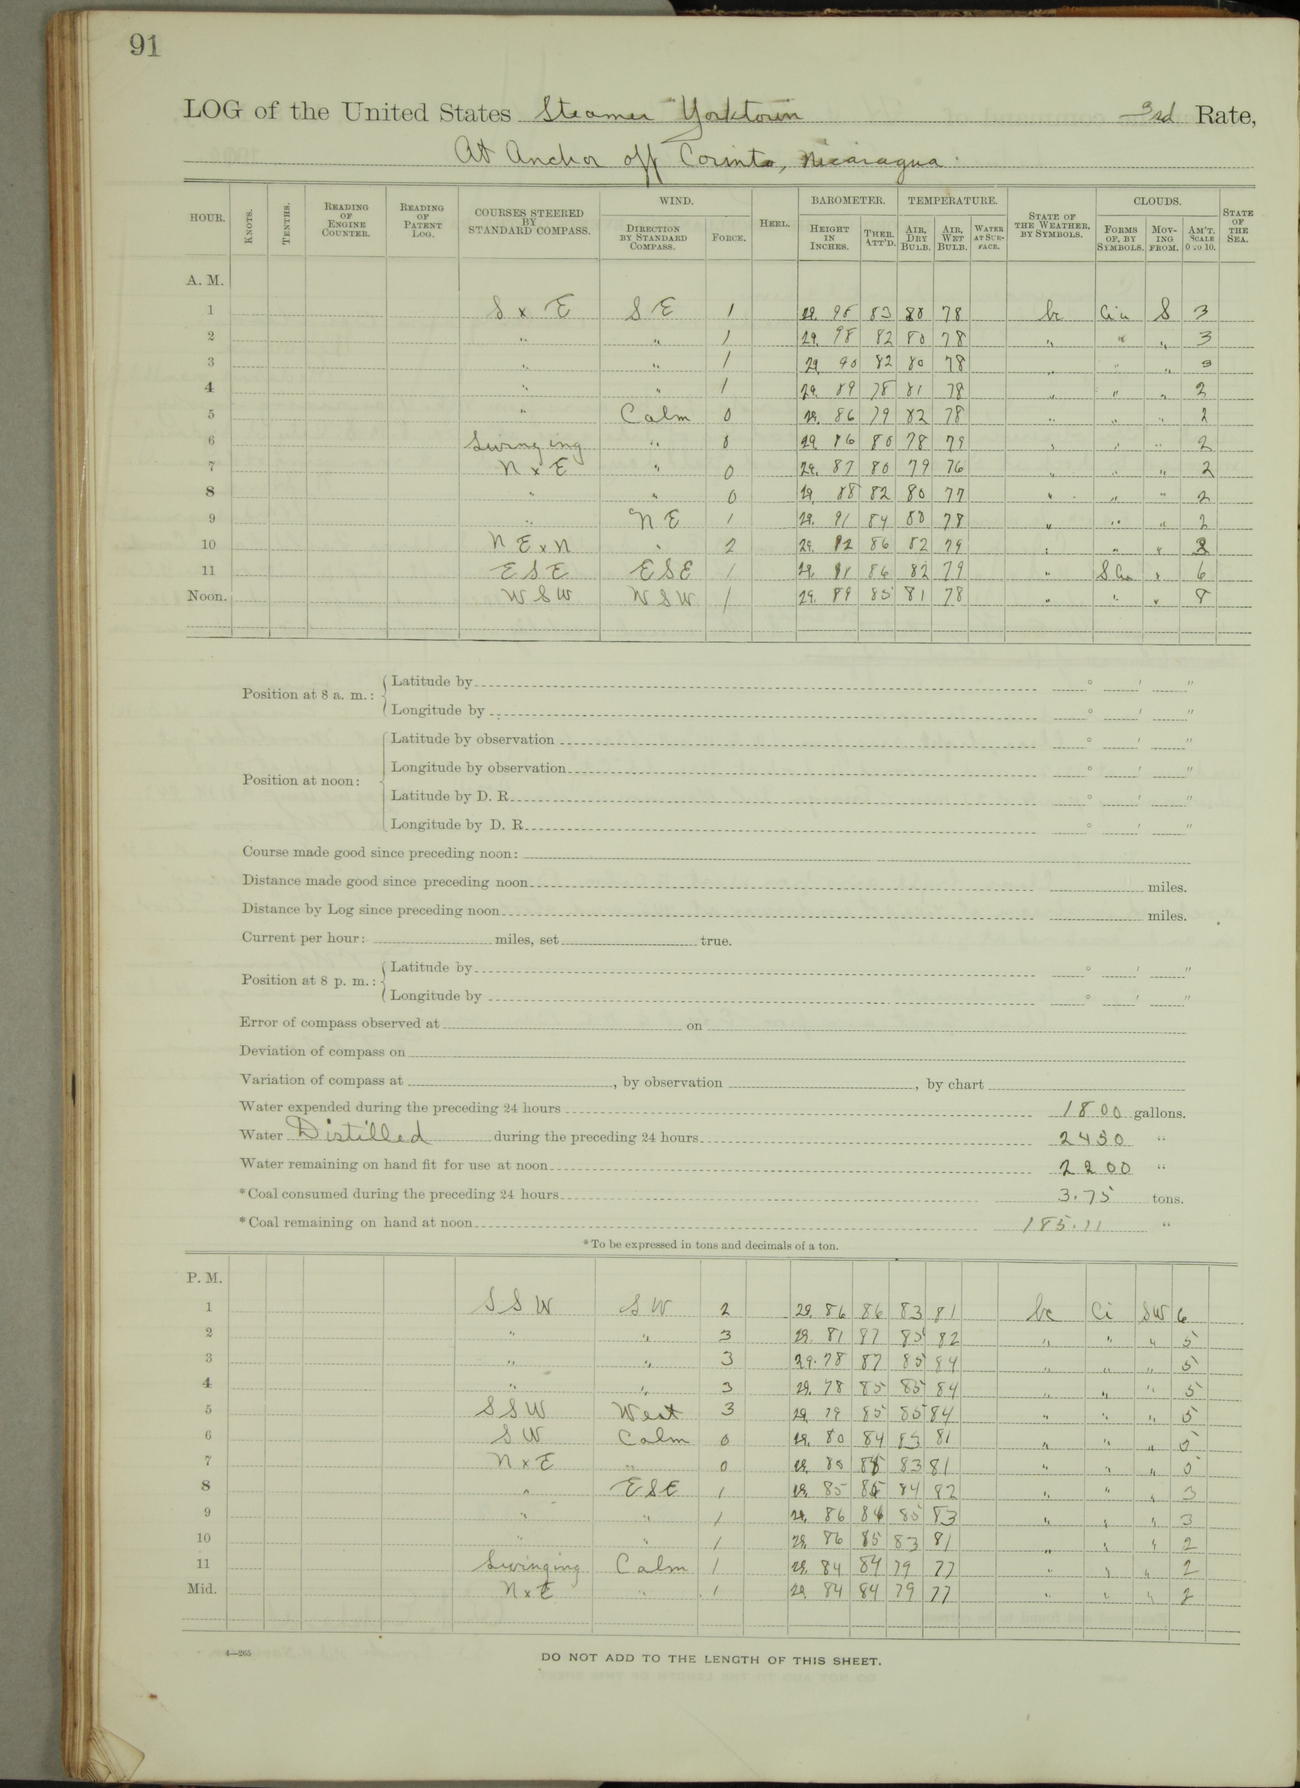 91
LOG of the United States Steamer Yorktown 3rd Rate,
At Anchor off Corinto, Nicaragua.
HOUR. KNOTS. TENTHS. READING OF ENGINE COUNTER. READING OF PATENT LOG. COURSES STEERED BY STANDARD COMPASS. WIND. DIRECTION BY STANDARD COMPASS. FORCE. HEEL. BAROMETER. HEIGHT IN INCHES. THER. ATT'D. TEMPERATURE. AIR, DRY BULB. AIR, WET BULB. WATER AT SURFACE. STATE OF THE WEATHER, BY SYMBOLS. CLOUDS. FORMS OF, BY SYMBOLS. MOVING FROM. AM'T. SCALE 0 TO 10. STATE OF THE SEA.
A. M.
1 S x E S E 1 29. 83 78 bc S 3
2 " " 1 29. 98 82 80 78 " " " 3
3 " " 1 29 90 82 80 78 " " " 3
4 " " 1 29. 89 78 81 78 " " " 2
5 " Calm 0 29. 86 79 82 78 " " " 2
6 Swinging " 0 29 86 80 78 79 " " " 2
7 N x E " 0 29. 87 80 79 76 " " " 2
8 " " 0 29. 88 82 80 77 " " " 2
9 " N E 1 29. 91 84 80 78 " " " 2
10 N E x N " 2 29. 92 86 82 79 " " "
11 E S E E S E 1 29. 91 86 82 79 " " 6
Noon. W S W W S W 1 29. 89 85 81 78 " " " 8
Position at 8 a. m.: Latitude by ° ′ ″
Longitude by ° ′ ″
Position at noon: Latitude by observation ° ′ ″
Longitude by observation ° ′ ″
Latitude by D. R. ° ′ ″
Longitude by D. R. ° ′ ″
Course made good since preceding noon:
Distance made good since preceding noon miles.
Distance by Log since preceding noon miles.
Current per hour: miles, set true.
Position at 8 p. m.: Latitude by ° ′ ″
Longitude by ° ′ ″
Error of compass observed at on
Deviation of compass on
Variation of compass at , by observation , by chart
Water expended during the preceding 24 hours 1800 gallons.
Water Distilled during the preceding 24 hours 2450 "
Water remaining on hand fit for use at noon 2200 "
*Coal consumed during the preceding 24 hours 3.75 tons.
*Coal remaining on hand at noon 185.11 "
*To be expressed in tons and decimals of a ton.
P. M.
1 S S W S W 2 29. 86 86 83 81 bc Ci SW 6
2 " " 3 29. 81 87 85 82 " " " 5
3 " " 3 29. 78 87 85 84 " " " 5
4 " " 3 29. 78 85 85 84 " " " 5
5 S S W West 3 29 79 85 85 84 " " " 5
6 S W Calm 0 29. 80 84 83 81 " " " 5
7 N x E " 0 29. 83 81 " " " 5
8 " E S E 1 29. 85 84 82 " " " 3
9 " " 1 29. 86 85 83 " " " 3
10 " " 1 29. 86 85 83 81 " " " 2
11 Swinging Calm 1 29. 84 84 79 77 " " " 2
Mid. N x E " 1 29. 84 84 79 77 " " " 2
4—265
DO NOT ADD TO THE LENGTH OF THIS SHEET.